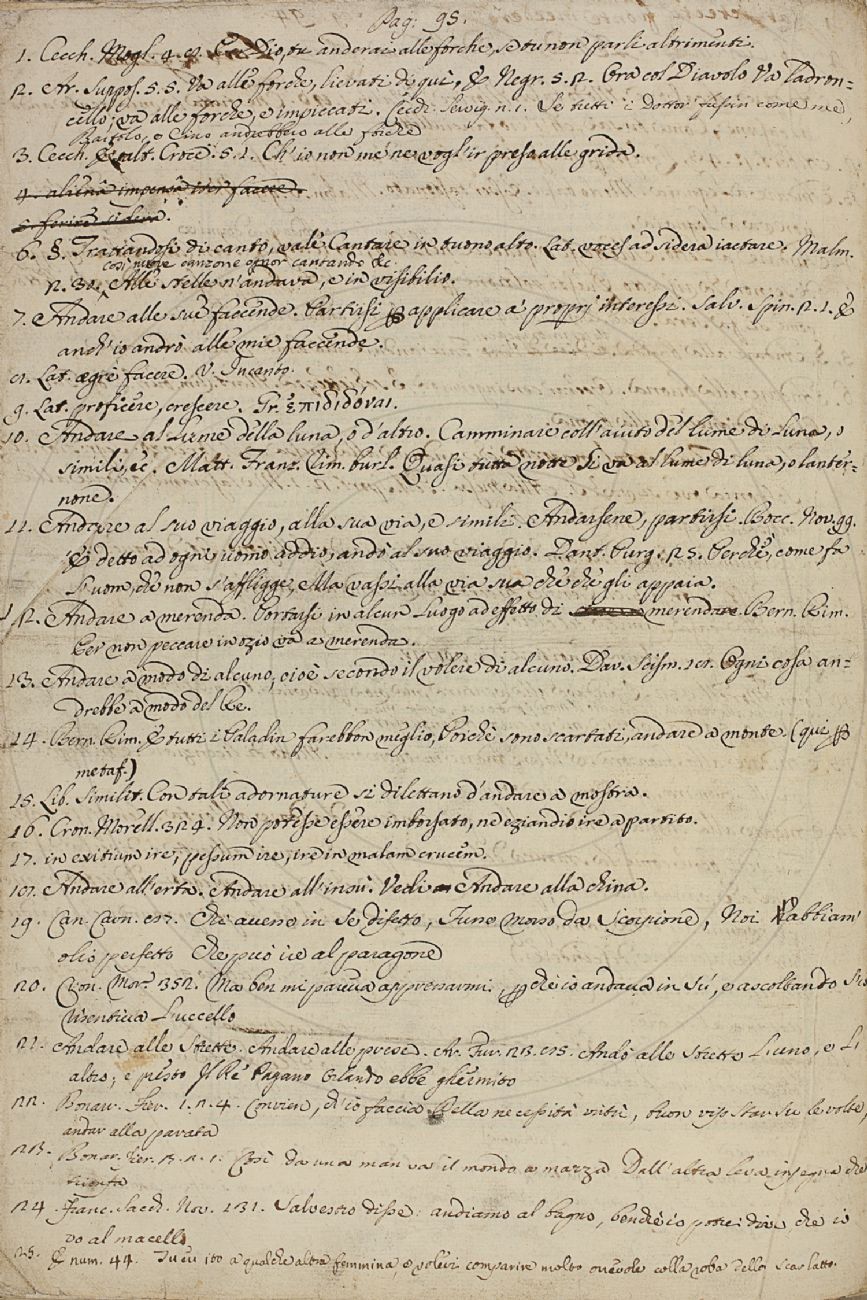 Pag: 95.
1. Cecch. Mogl. 4. 2. Per Dio, tu anderai alle forche, se tu non parli altrimenti.
2. Ar. Suppos. 5. 5. Va alle forche, lievati di qui, & Negr. 5. 2. Ora col Diavolo Va ladron=
cello, va alle forche, e impiccati. Cecch. Servig. n. 1. Se tutti i Dottor fussin come me,
Bartolo, e Cino andrebbero alle forche
3. Cecch. Esalt. Croce. 5. 1. Ch'io non me ne vogl'ir preso alle grida.
4. aliena impensa iter facere.
5. ferire sidera.
6. §. Trattandosi di canto, vale Cantare in tuono alto. Lat. voces ad sidera iactare. Malm.
così nuove canzone ognor cantando &c.
2. 31. Alle stelle n'andava, e in visibilio.
7. Andare alle sue faccende. Partirsi applicare a' proprj interessi. Salv. Spin. 2. 1. E
anch'io andrò alle mie faccende.
8. Lat. ægre facere. V. Incanto.
9. Lat. proficere, crescere. Gr. ἐπιδιδόναι.
10. Andare al Lume della luna, o d'altro. Camminare coll'aiuto del lume di Luna, o
simili, &c. Matt. Franz. Rim. burl. Quasi tutta notte Si va al lume di luna, o lanter=
none.
11. Andare al suo viaggio, alla sua via, e simili. Andarsene, partirsi. Bocc. Nov. 99.
E detto ad ogni uomo addio, andò al suo viaggio. Dant. Purg. 25. Perchè, come fa
l'uom, che non s'affigge, Ma vassi alla via sua che chè gli appaia.
12. Andare a merenda. Portarsi in alcun Luogo ad effetto di merendare. Bern. Rim.
Per non peccare in ozio va a merenda.
13. Andare a modo di alcuno, cioè secondo il volere di alcuno. Dav. Scism. 18. Ogni cosa an=
drebbe a modo del Re.
14. Bern. Rim. E tutti i Paladin farebbon meglio, Poichè sono scartati, andare a monte. (qui
metaf.)
15. Lib. Similit. Con tali adornature si dilettano d'andare a mostra.
16. Cron. Morell. 324. Non potesse essere imborsato, nè eziandio ire a partito.
17. in exitium ire, pessum ire, ire in malam crucem.
18. Andare all'erta. Andare all'insù. Vedi Andare alla china.
19. Can. Carn. 87. Chi avesse in se difetto, Fusse morso da Scorpione, Noi abbiam'
olio perfetto Che può ire al paragone
20. Cron. Mor. 352. Ma ben mi pareva appressarmi, che io andava in sù, e ascoltando
l'uccello
21. Andare alle Strette. Andare alle prese. Ar. Fur. 23. 85. Andò alle strette L'uno, e L'
altro; e presto Il Re Pagano Orlando ebbe ghermito
22. Bonar. Fier. 1. 2. 4. Convien, ch'io faccia Della necessità virtù, buon viso Star su le volte,
andar alla parata
23. Bonar. Fier. 3. 2. 1. Così da una man va il mondo a mazza Dall'altra leva insegna che
trionfa
24. Franc. Sacch. Nov. 131. Salvestro disse: andiamo al bagno, benchè io potrei dire, che io
vo al macello
25. E num. 44. Tu eri ito a qualche altra femmina, e volevi comparire molto orrevole colla roba dello scarlatto.